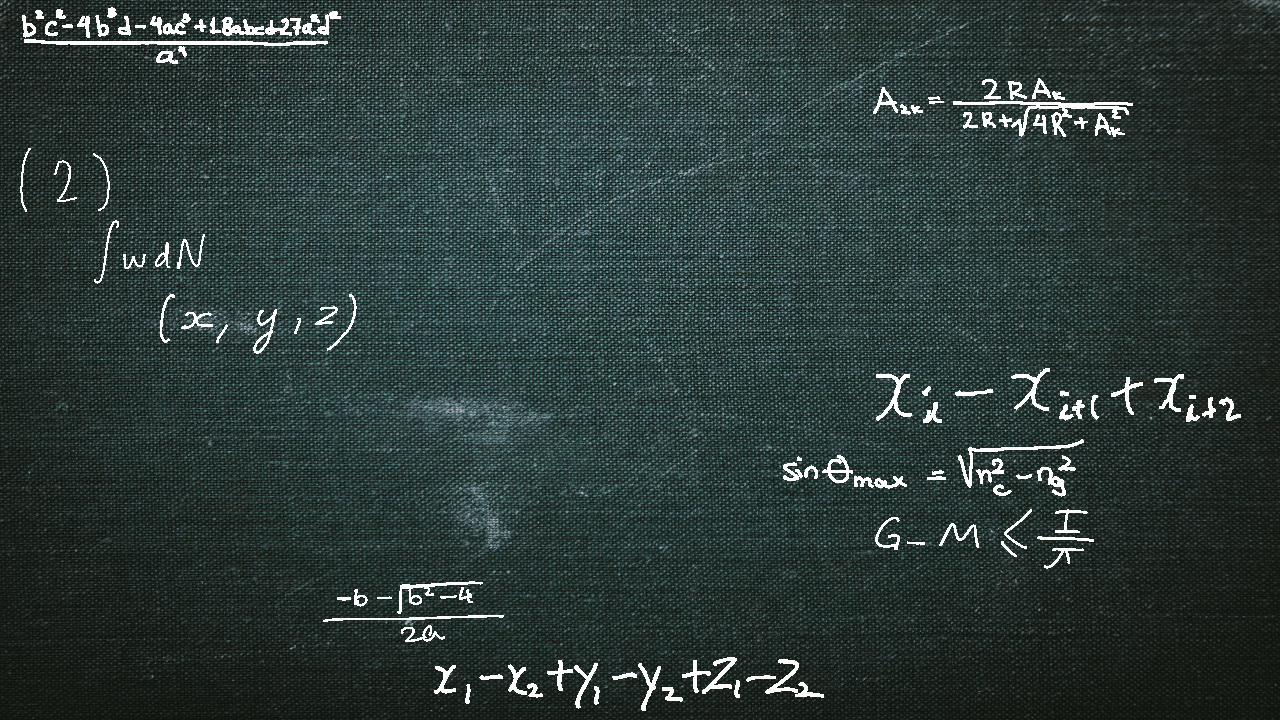 \frac{b^2c^2-4b^3d-4ac^3+18abcd-27a^2d^2}{a^4}
A_{2k} = \frac{2RA_k}{2R+\sqrt{4R^2+A_k^2}}
(2)
\int w dN
(x, y, z)
x_i - x_{i+1} + x_{i+2}
\sin\theta_{max} = \sqrt{n_c^2 - n_g^2}
G - M \leqslant \frac{I}{\pi}
\frac{-b-\sqrt{b^2-4}}{2a}
x_1-x_2+y_1-y_2+z_1-z_2